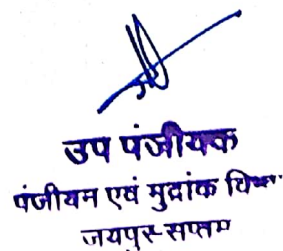 उप पंजीयक
पंजीयन एवं मुद्रांक
जयपुर-सप्तम